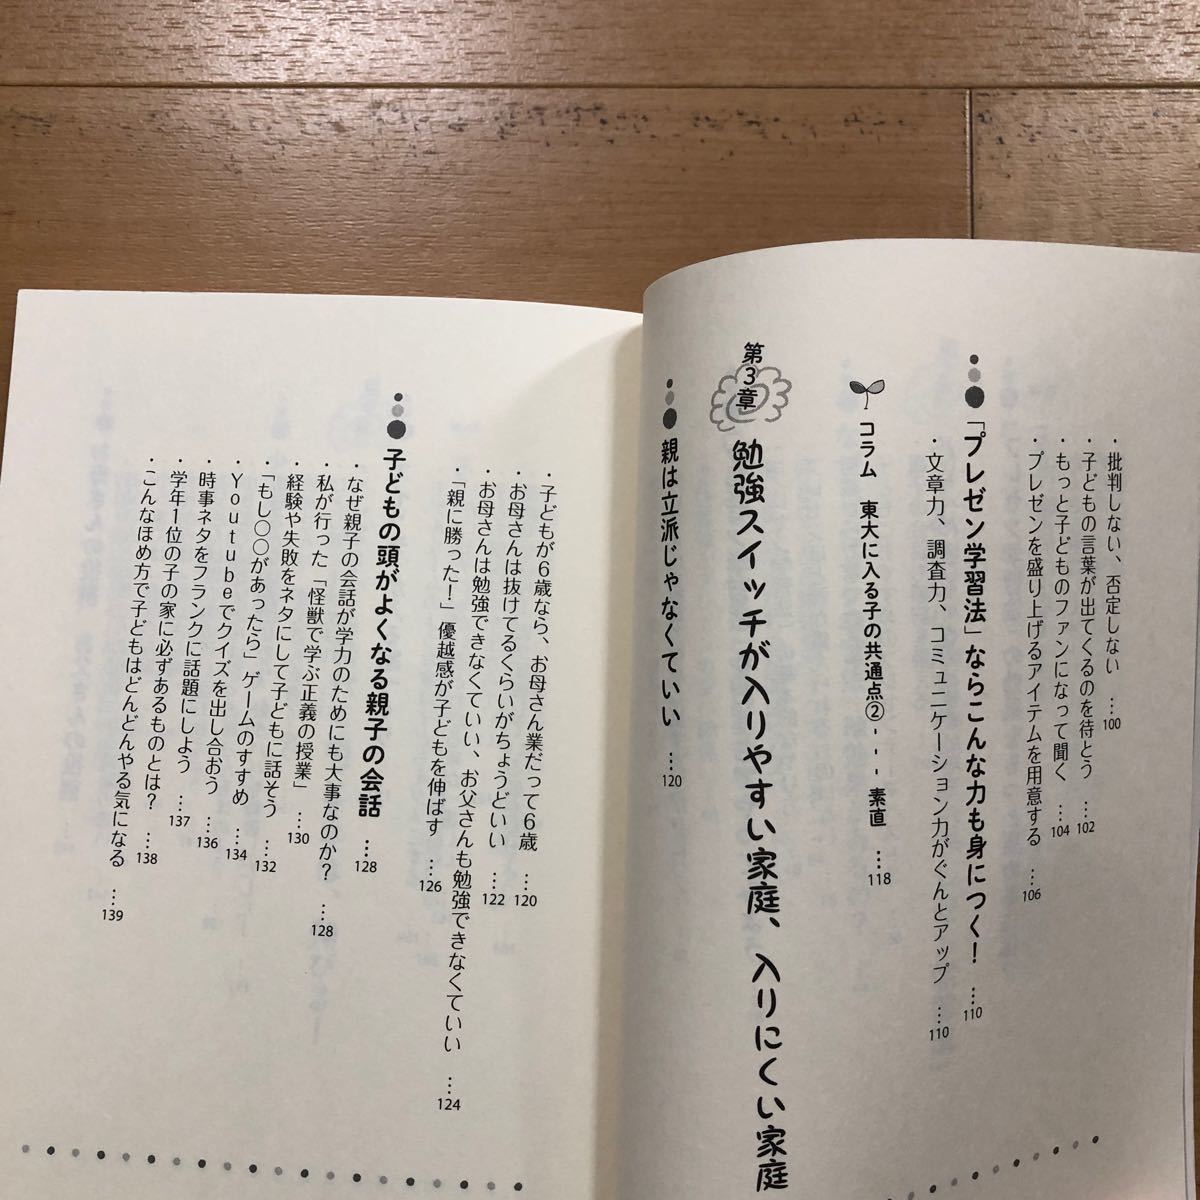 ・批判しない、否定しない …100
・子どもの言葉が出てくるのを待とう …102
・もっと子どものファンになって聞く …104
・プレゼンを盛り上げるアイテムを用意する …106
「プレゼン学習法」ならこんな力も身につく！ …110
・文章力、調査力、コミュニケーション力がぐんとアップ …110
コラム 東大に入る子の共通点②---素直 …118
第3章 勉強スイッチが入りやすい家庭、入りにくい家庭
親は立派じゃなくていい …120
・子どもが6歳なら、お母さん業だって6歳 …120
・お母さんは抜けてるくらいがちょうどいい …122
・お母さんは勉強できなくていい、お父さんも勉強できなくていい …124
・「親に勝った！」優越感が子どもを伸ばす …126
子どもの頭がよくなる親子の会話 …128
・なぜ親子の会話が学力のためにも大事なのか？ …128
・私が行った「怪獣で学ぶ正義の授業」 …130
・経験や失敗をネタにして子どもに話そう …132
・「もし〇〇があったら」ゲームのすすめ …134
・Youtubeでクイズを出し合おう …136
・時事ネタをフランクに話題にしよう …137
・学年1位の子の家に必ずあるものとは？ …138
・こんなほめ方で子どもはどんどんやる気になる …139